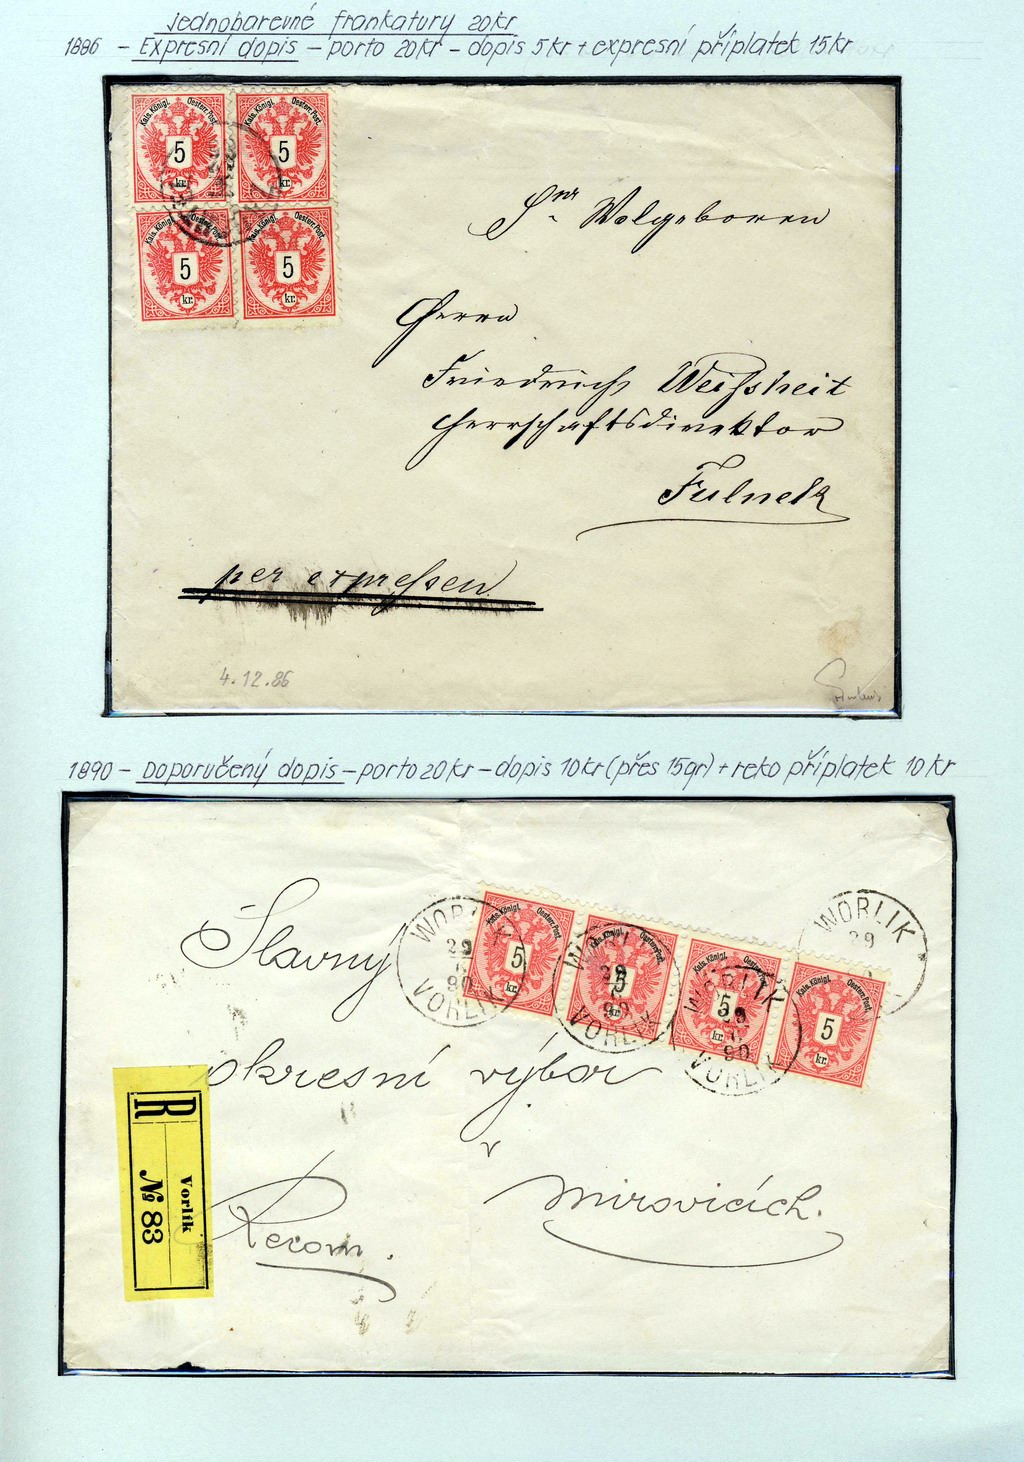 Jednobarevné frankatury 20kr
1886 – Expresní dopis – porto 20kr – dopis 5kr + expresní příplatek 15kr
Kais. Königl. Oesterr. Post.
5
kr.
Kais. Königl. Oesterr. Post.
5
kr.
Kais. Königl. Oesterr. Post.
5
kr.
Kais. Königl. Oesterr. Post.
5
kr.
Sr Wolgeboren
Herrn
Friedrich Weißheit
Herrschaftsdirektor
Fulnek
per expressen
4.12.86
1890 – Doporučený dopis – porto 20kr – dopis 10kr (přes 15gr) + reko příplatek 10kr
WORLIK
29
90
VORLÍK
Kais. Königl. Oesterr. Post.
5
WORLIK
29
90
VORLÍK
Kais. Königl. Oesterr. Post.
5
kr.
WORLIK
29
90
VORLÍK
Kais. Königl. Oesterr. Post.
5
kr.
Kais. Königl. Oesterr. Post.
5
kr.
WORLIK
29
Slavný
okresní výbor
v
Mirovicích.
Recom.
R
Vorlík
№ 83